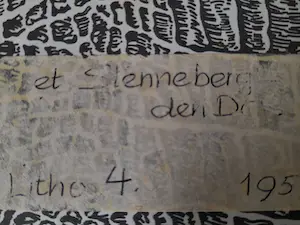 et Slenneberg
den D
Litho 4. 195